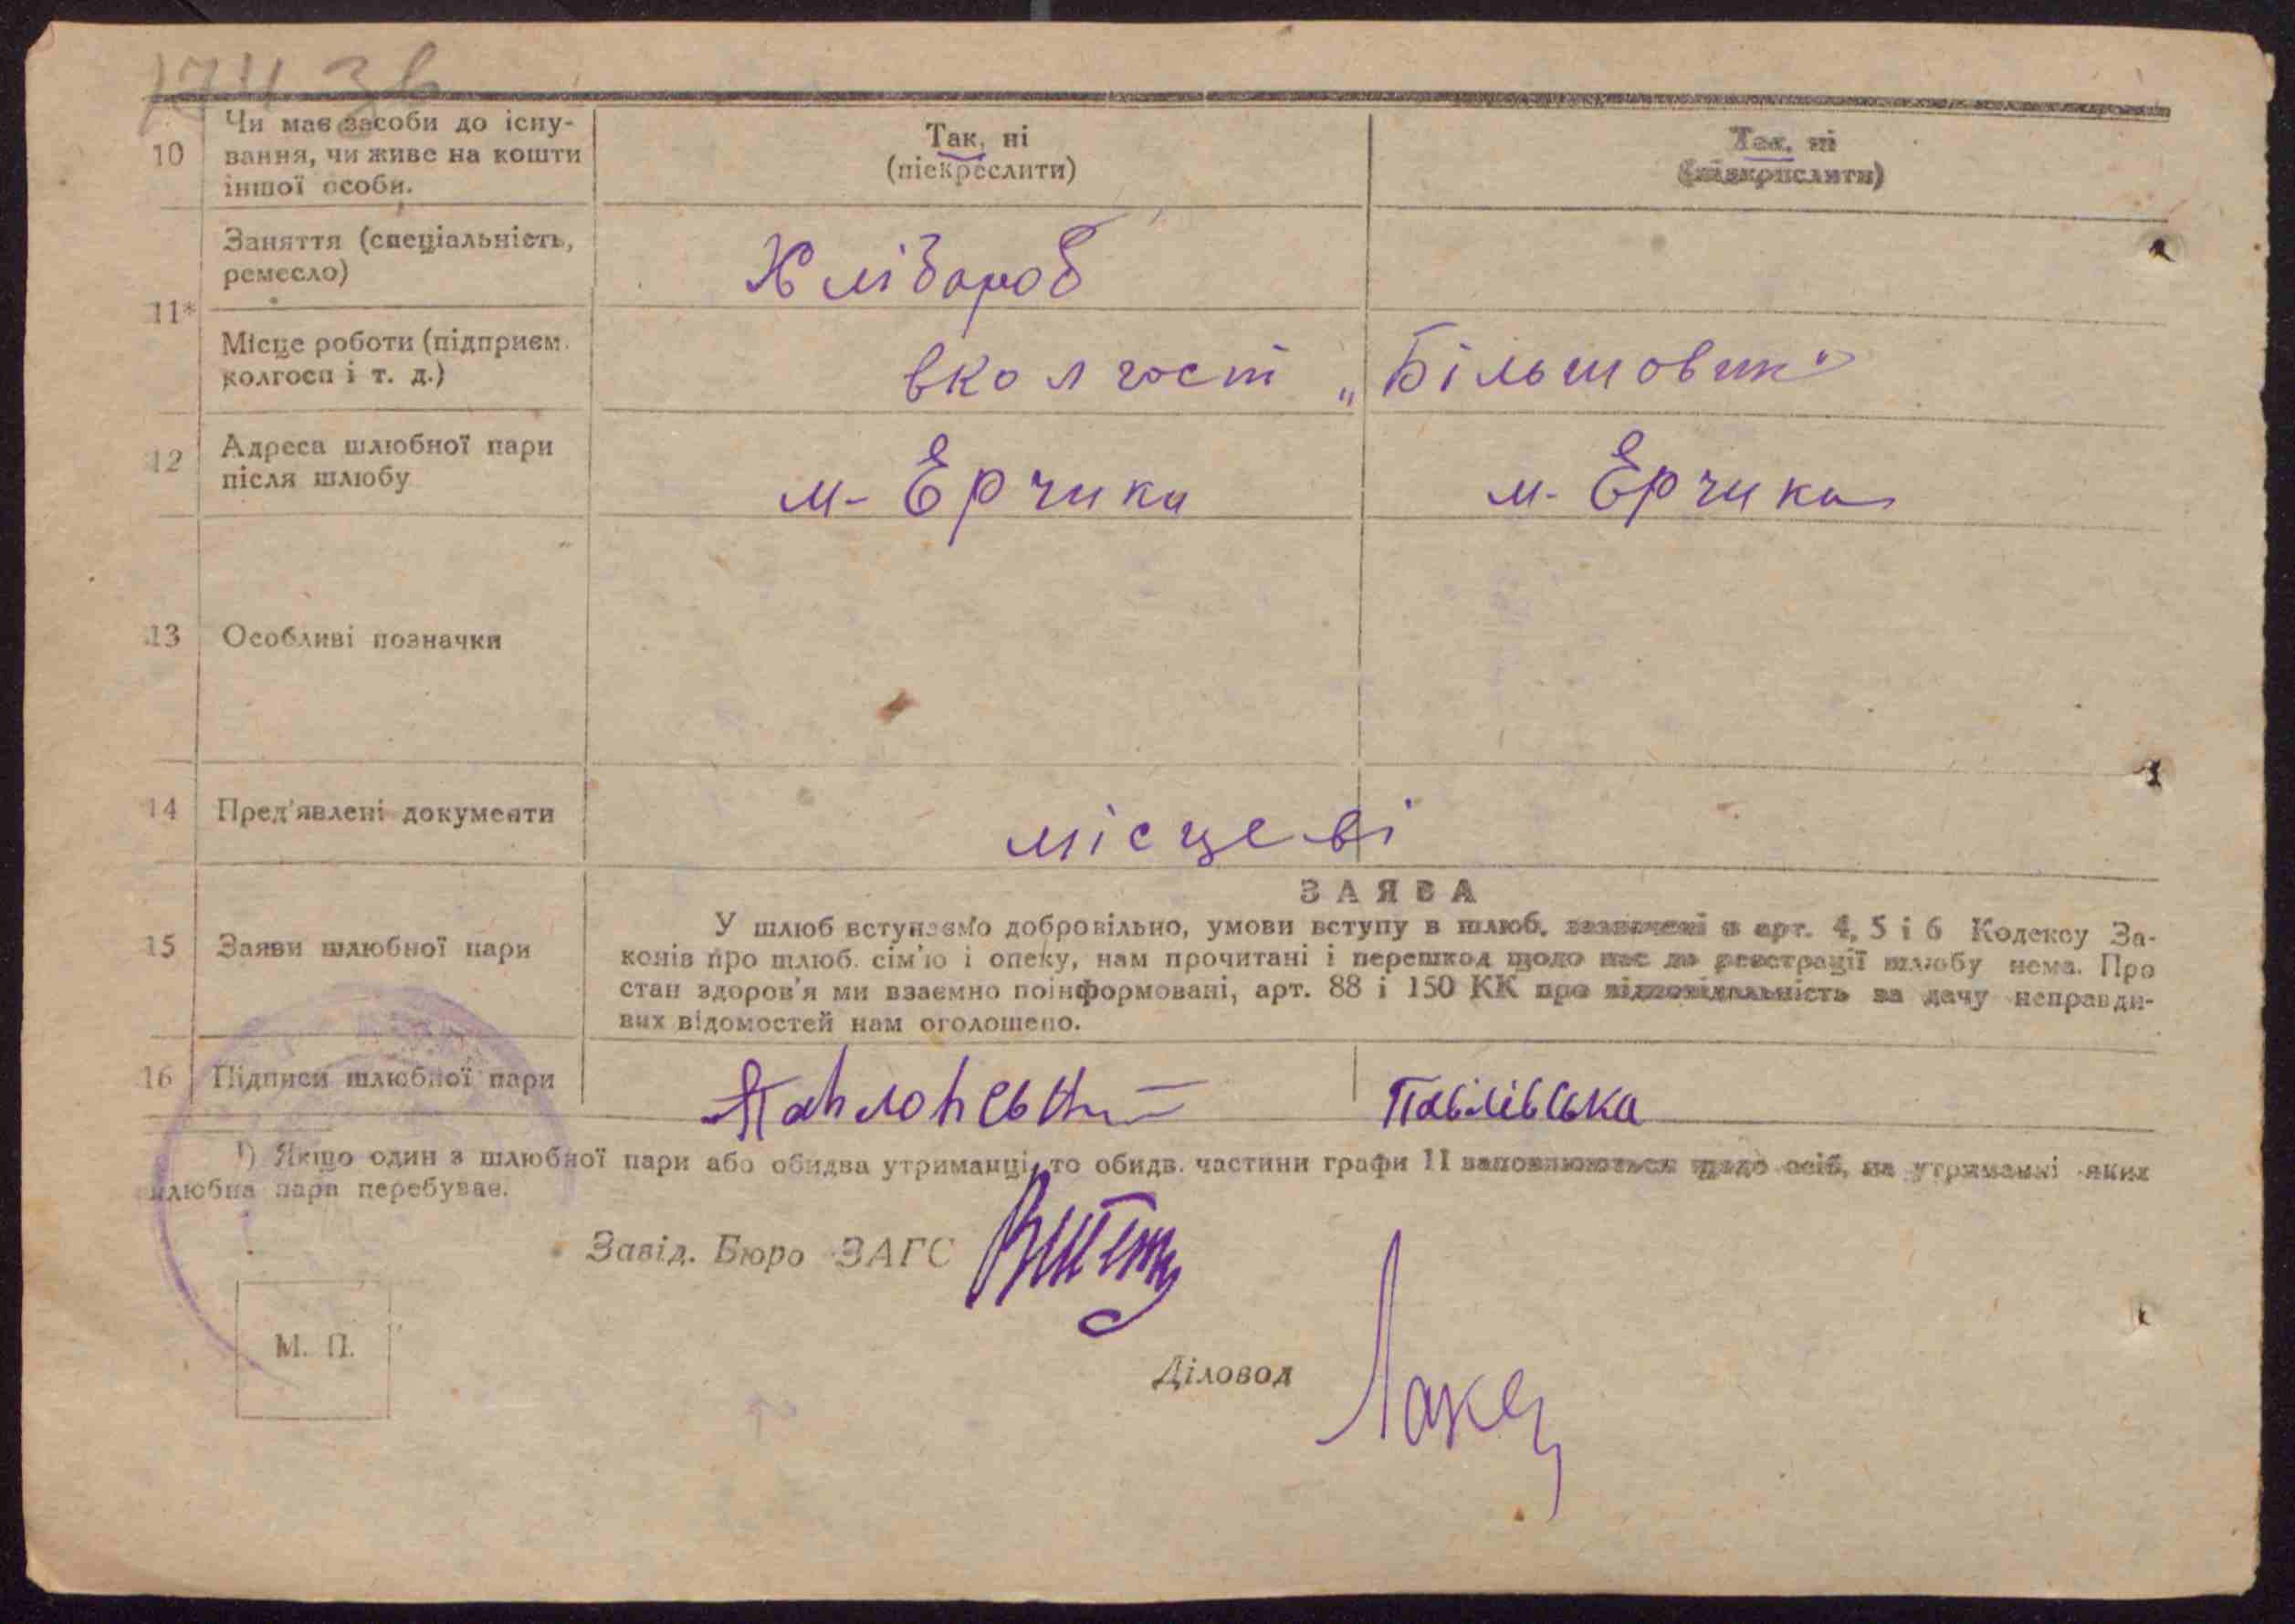 174 зв
10 Чи має засоби до існу- Так, ні Так, ні
вання, чи живе на кошти (піекреслити) (підкреслити)
іншої особи.
Заняття (спеціальність, Хлібароб
ремесло)
11*
Місце роботи (підприєм. вколгості „Більшовик"
колгосп і т. д.)
12 Адреса шлюбної пари м- Єрчики м. Єрчики
після шлюбу
13 Особливі позначки
14 Пред'явлені документи місцеві
ЗАЯВА
15 Заяви шлюбної пари
У шлюб вступаємо добровільно, умови вступу в шлюб, зазначені в арт. 4, 5 і 6 Кодексу За-
конів про шлюб. сім'ю і опеку, нам прочитані і перешкод щодо нас до реєстрації шлюбу нема. Про
стан здоров'я ми взаємно поінформовані, арт. 88 і 150 КК про відповідальність за дачу неправди-
вих відомостей нам оголошено.
16 Підписи шлюбної пари Павловський Павлівська
¹) Якщо один з шлюбної пари або обидва утриманці, то обидв. частини графи 11 заповнюються щодо осіб, на утриманні яких
шлюбна пара перебуває.
Завід. Бюро ЗАГС
М. П.
Діловод